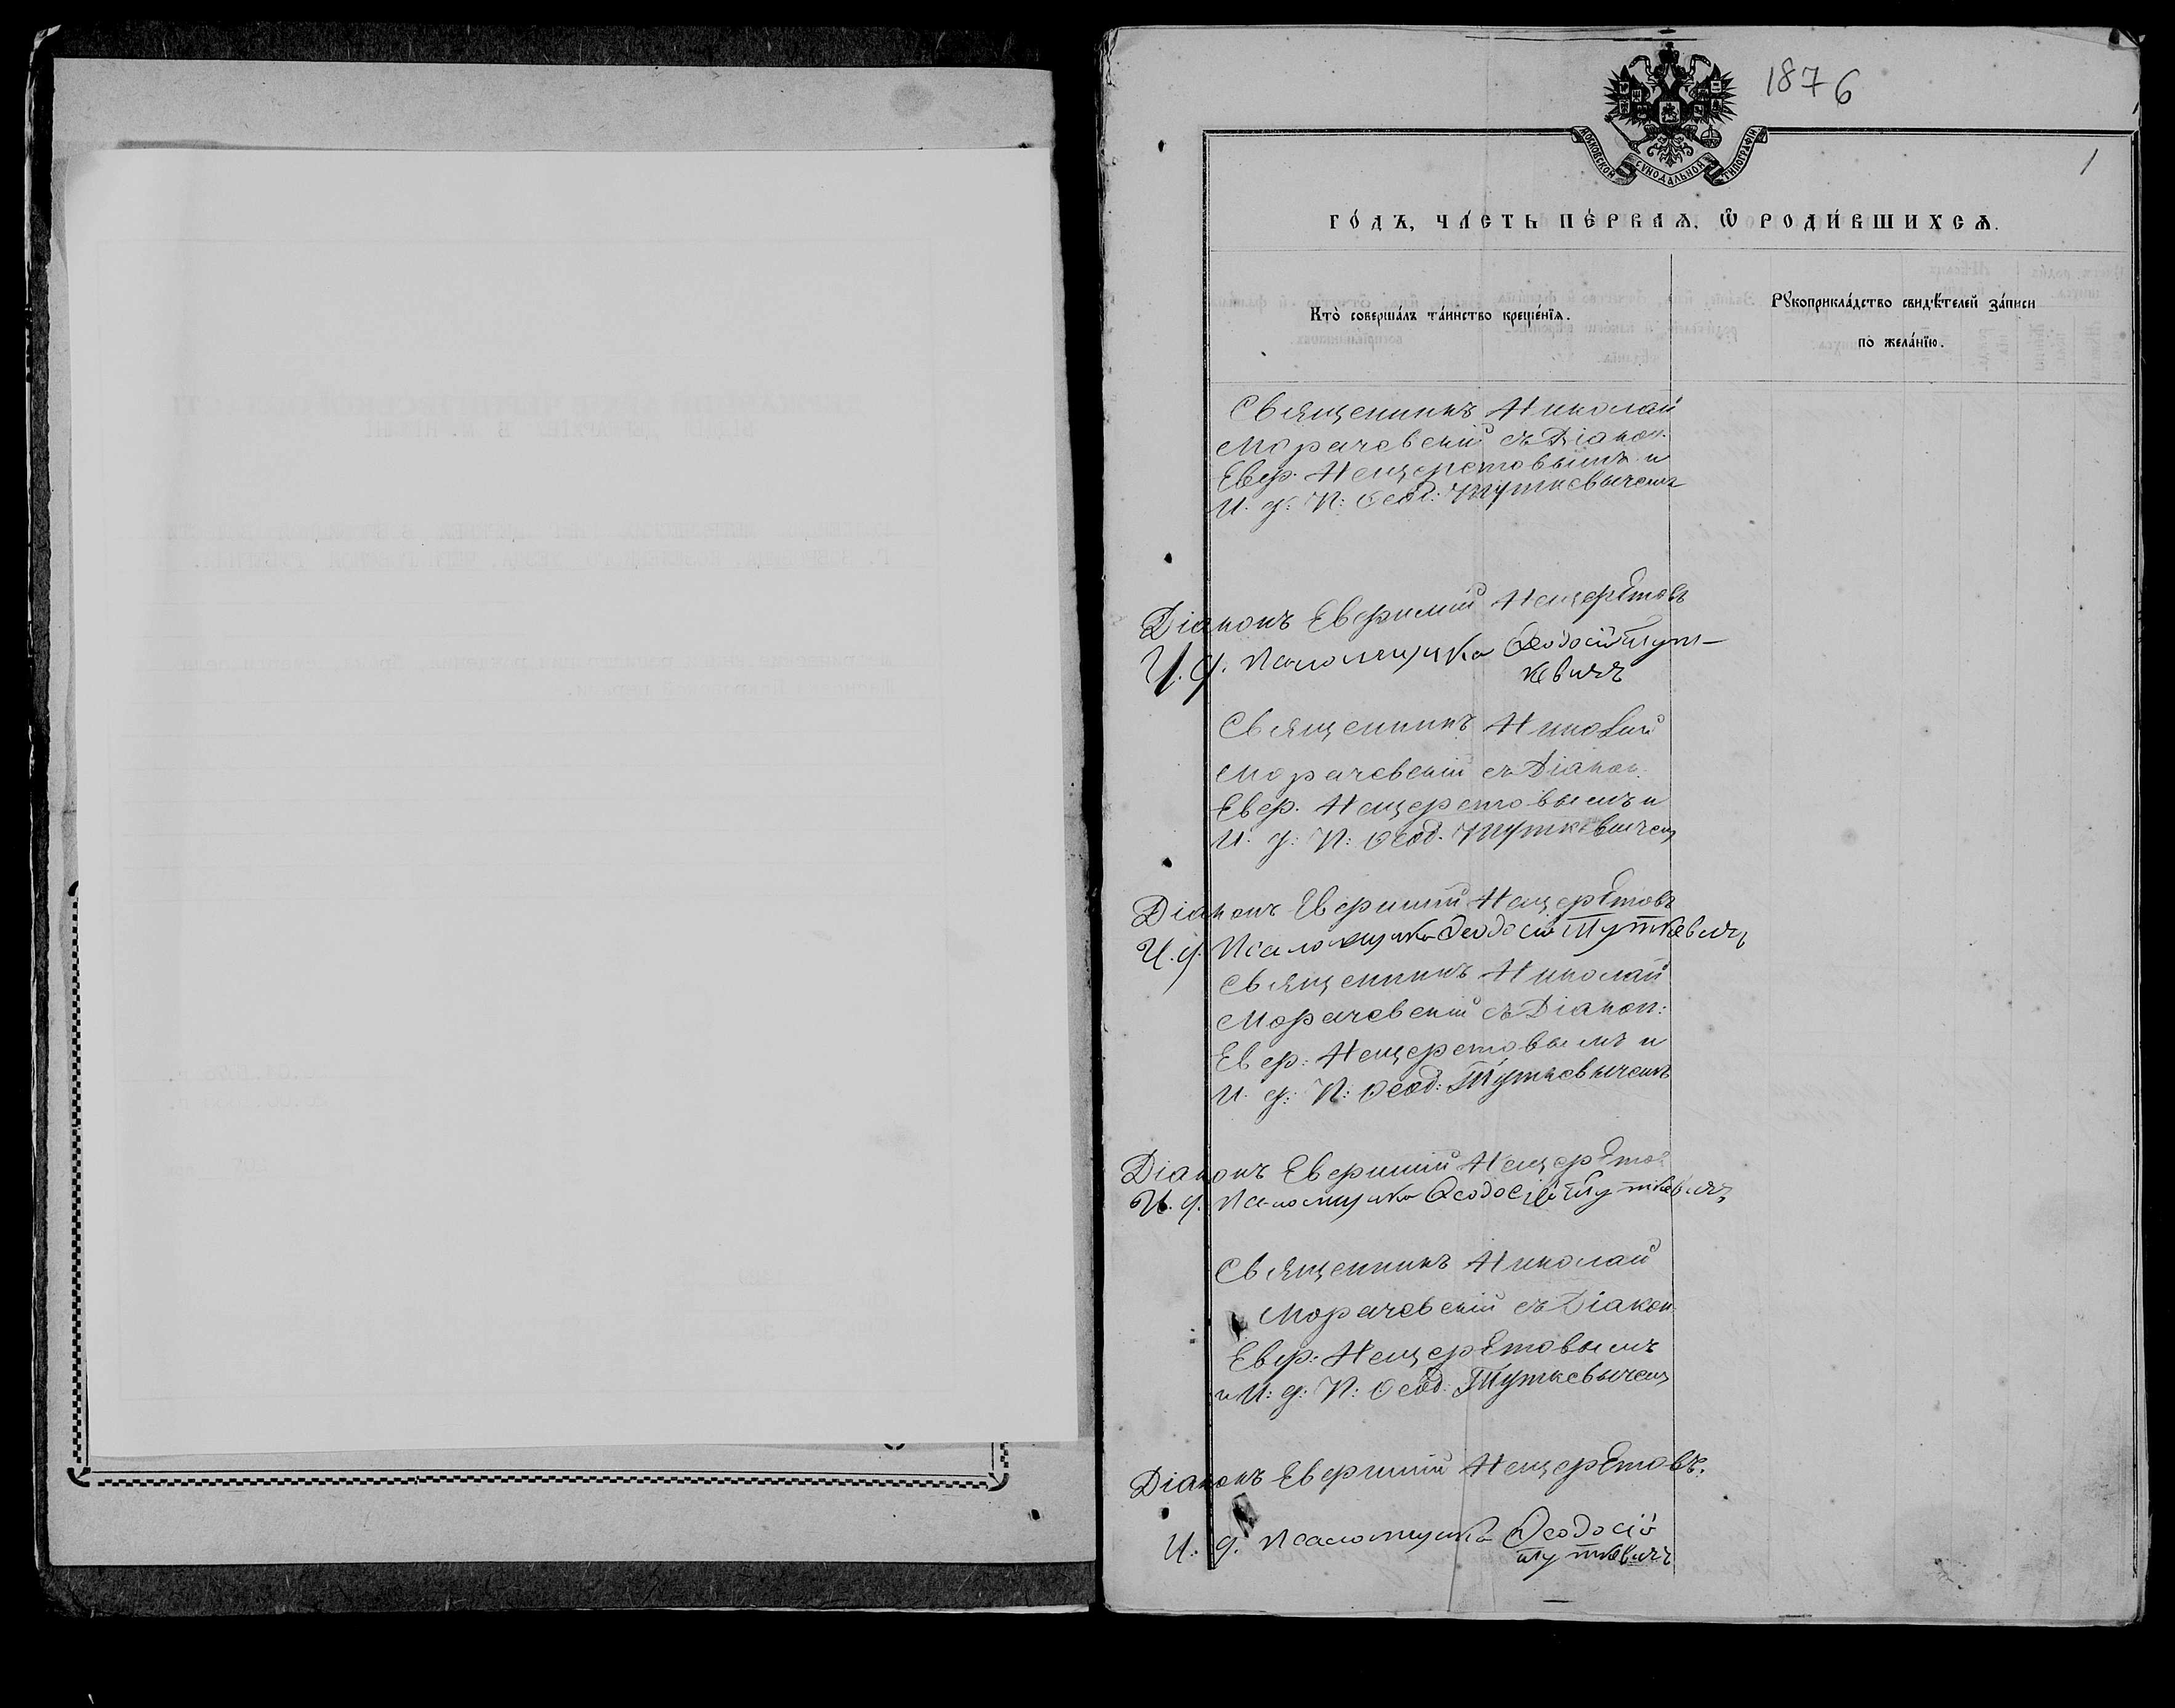 1876
1
МОСКОВСКОЙ СѴНОДАЛЬНОЙ ТИПОГРАФІИ
ГО́ДЪ, ЧА́СТЬ ПЕ́РВАѦ, Ѿ РОДИ́ВШИХСѦ.
Кто̀ соверша́лъ та́инство креще́нїѧ.
Рꙋкоприкла́дство свидѣ́телей за́писи
по жела́нїю.
Священникъ Николай
Морачевскій съ Діакон.
Евф. Нещеретовымъ и
И. д: П: Ѳеод: Туткевычемъ
Діаконъ Евфимій Нещерѣтовъ
И. д. Псаломщика Ѳеодосій Тут-
кевичъ
Священникъ Николай
Морачевскій съ Діакон.
Евф. Нещеретовымъ и
И. д: П: Ѳеод. Туткевичем
Діаконъ Евфимій Нещерѣтовъ
И. д. Псаломщика Ѳеодосій Туткевичъ
Священникъ Николай
Морачевскій съ Діакон:
Евф: Нещеретовымъ и
И. д: П: Ѳеод: Туткевычемъ
Діаконъ Евфимій Нещерѣтов
И. д. Псаломщика Ѳеодосій Туткевичъ
Священникъ Николай
Морачевскій съ Діакон
Евф: Нещерѣтовымъ
и И: д: П: Ѳеод: Туткевычем
Діаконъ Евфимій Нещерѣтовъ.
И. д. Псаломщика Ѳеодосій
Туткевичъ